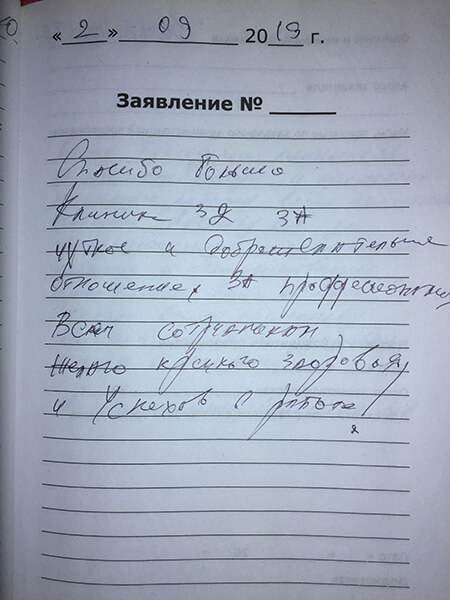 « 2 » 09 2019 г.
Заявление №
Спасибо большое
Клинике 3Д за
чуткое и доброжелательное
отношение, за профессионализм
Всем сотрудникам
желаю крепкого здоровья,
и успехов в работе!